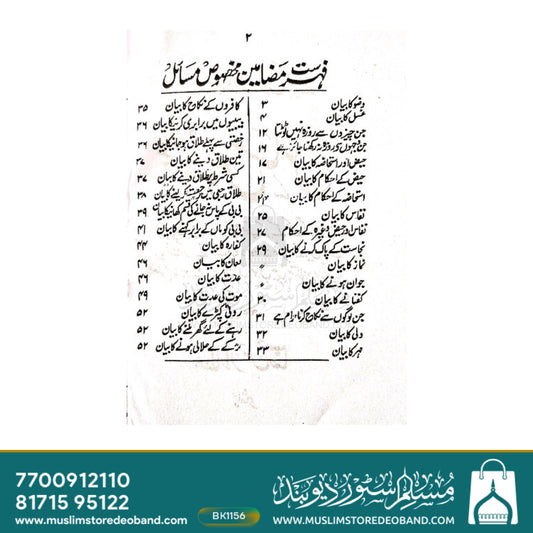 ۲
فہرست مضامین مخصوص مسائل
وضو کا بیان ۳
غسل کا بیان ۴
جن چیزوں سے روزہ نہیں ٹوٹتا ۱۲
جن وجہوں سے روزہ نہ رکھنا جائز ہے ۱۶
حیض اور استحاضہ کا بیان ۱۷
حیض کے احکام کا بیان ۲۱
استحاضہ کے احکام کا بیان ۲۴
نفاس کا بیان ۲۵
نفاس اور حیض وغیرہ کے احکام ۲۷
نجاست کے پاک کرنے کا بیان ۲۹
نماز کا بیان
جوان ہونے کا بیان
کفنانے کا بیان ۳۰
جن لوگوں سے نکاح کرنا حرام ہے ۳۱
ولی کا بیان ۳۲
مہر کا بیان ۳۳
کافروں کے نکاح کا بیان ۳۵
بیبیوں میں برابری کرنیکا بیان ۳۶
رخصتی سے پہلے طلاق ہو جانیکا بیان ۳۶
تین طلاق دینے کا بیان ۳۷
کسی شرط پر طلاق دینے کا بیان ۳۷
طلاق رجعی میں رجعت کر لینے کا بیان ۳۸
بی بی کے پاس نہ جانے کی قسم کھانیکا بیان ۳۹
بی بی کو ماں کے برابر کہنے کا بیان ۴۱
کفارہ کا بیان ۴۴
لعان کا بیان ۴۶
عدت کا بیان ۴۶
موت کی عدت کا بیان ۴۹
روٹی کپڑے کا بیان ۵۲
رہنے کے لئے گھر ملنے کا بیان ۵۲
لڑکے کے حلالی ہونے کا بیان ۵۲
7700912110
81715 95122
www.muslimstoredeoband.com
BK1156
مسلم سٹور دیوبند
WWW.MUSLIMSTOREDEOBAND.COM